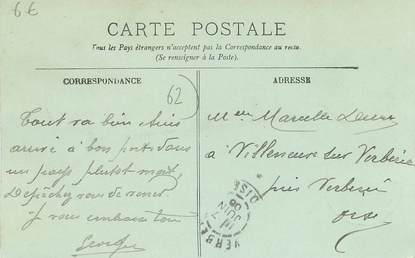 6€
CARTE POSTALE
Tous les Pays étrangers n'acceptent pas la Correspondance au recto.
(Se renseigner à la Poste).
CORRESPONDANCE
ADRESSE
62
Tout va bien
arrivé à bon port dans
un pays plutôt mort,
Dépéchez vous de venir
je vous embrasse tous
Georges
Melle Marcelle
à Villeneuve sur Verberie
près Verberie
Oise
VERBERIE
OISE
7
JUIN
06